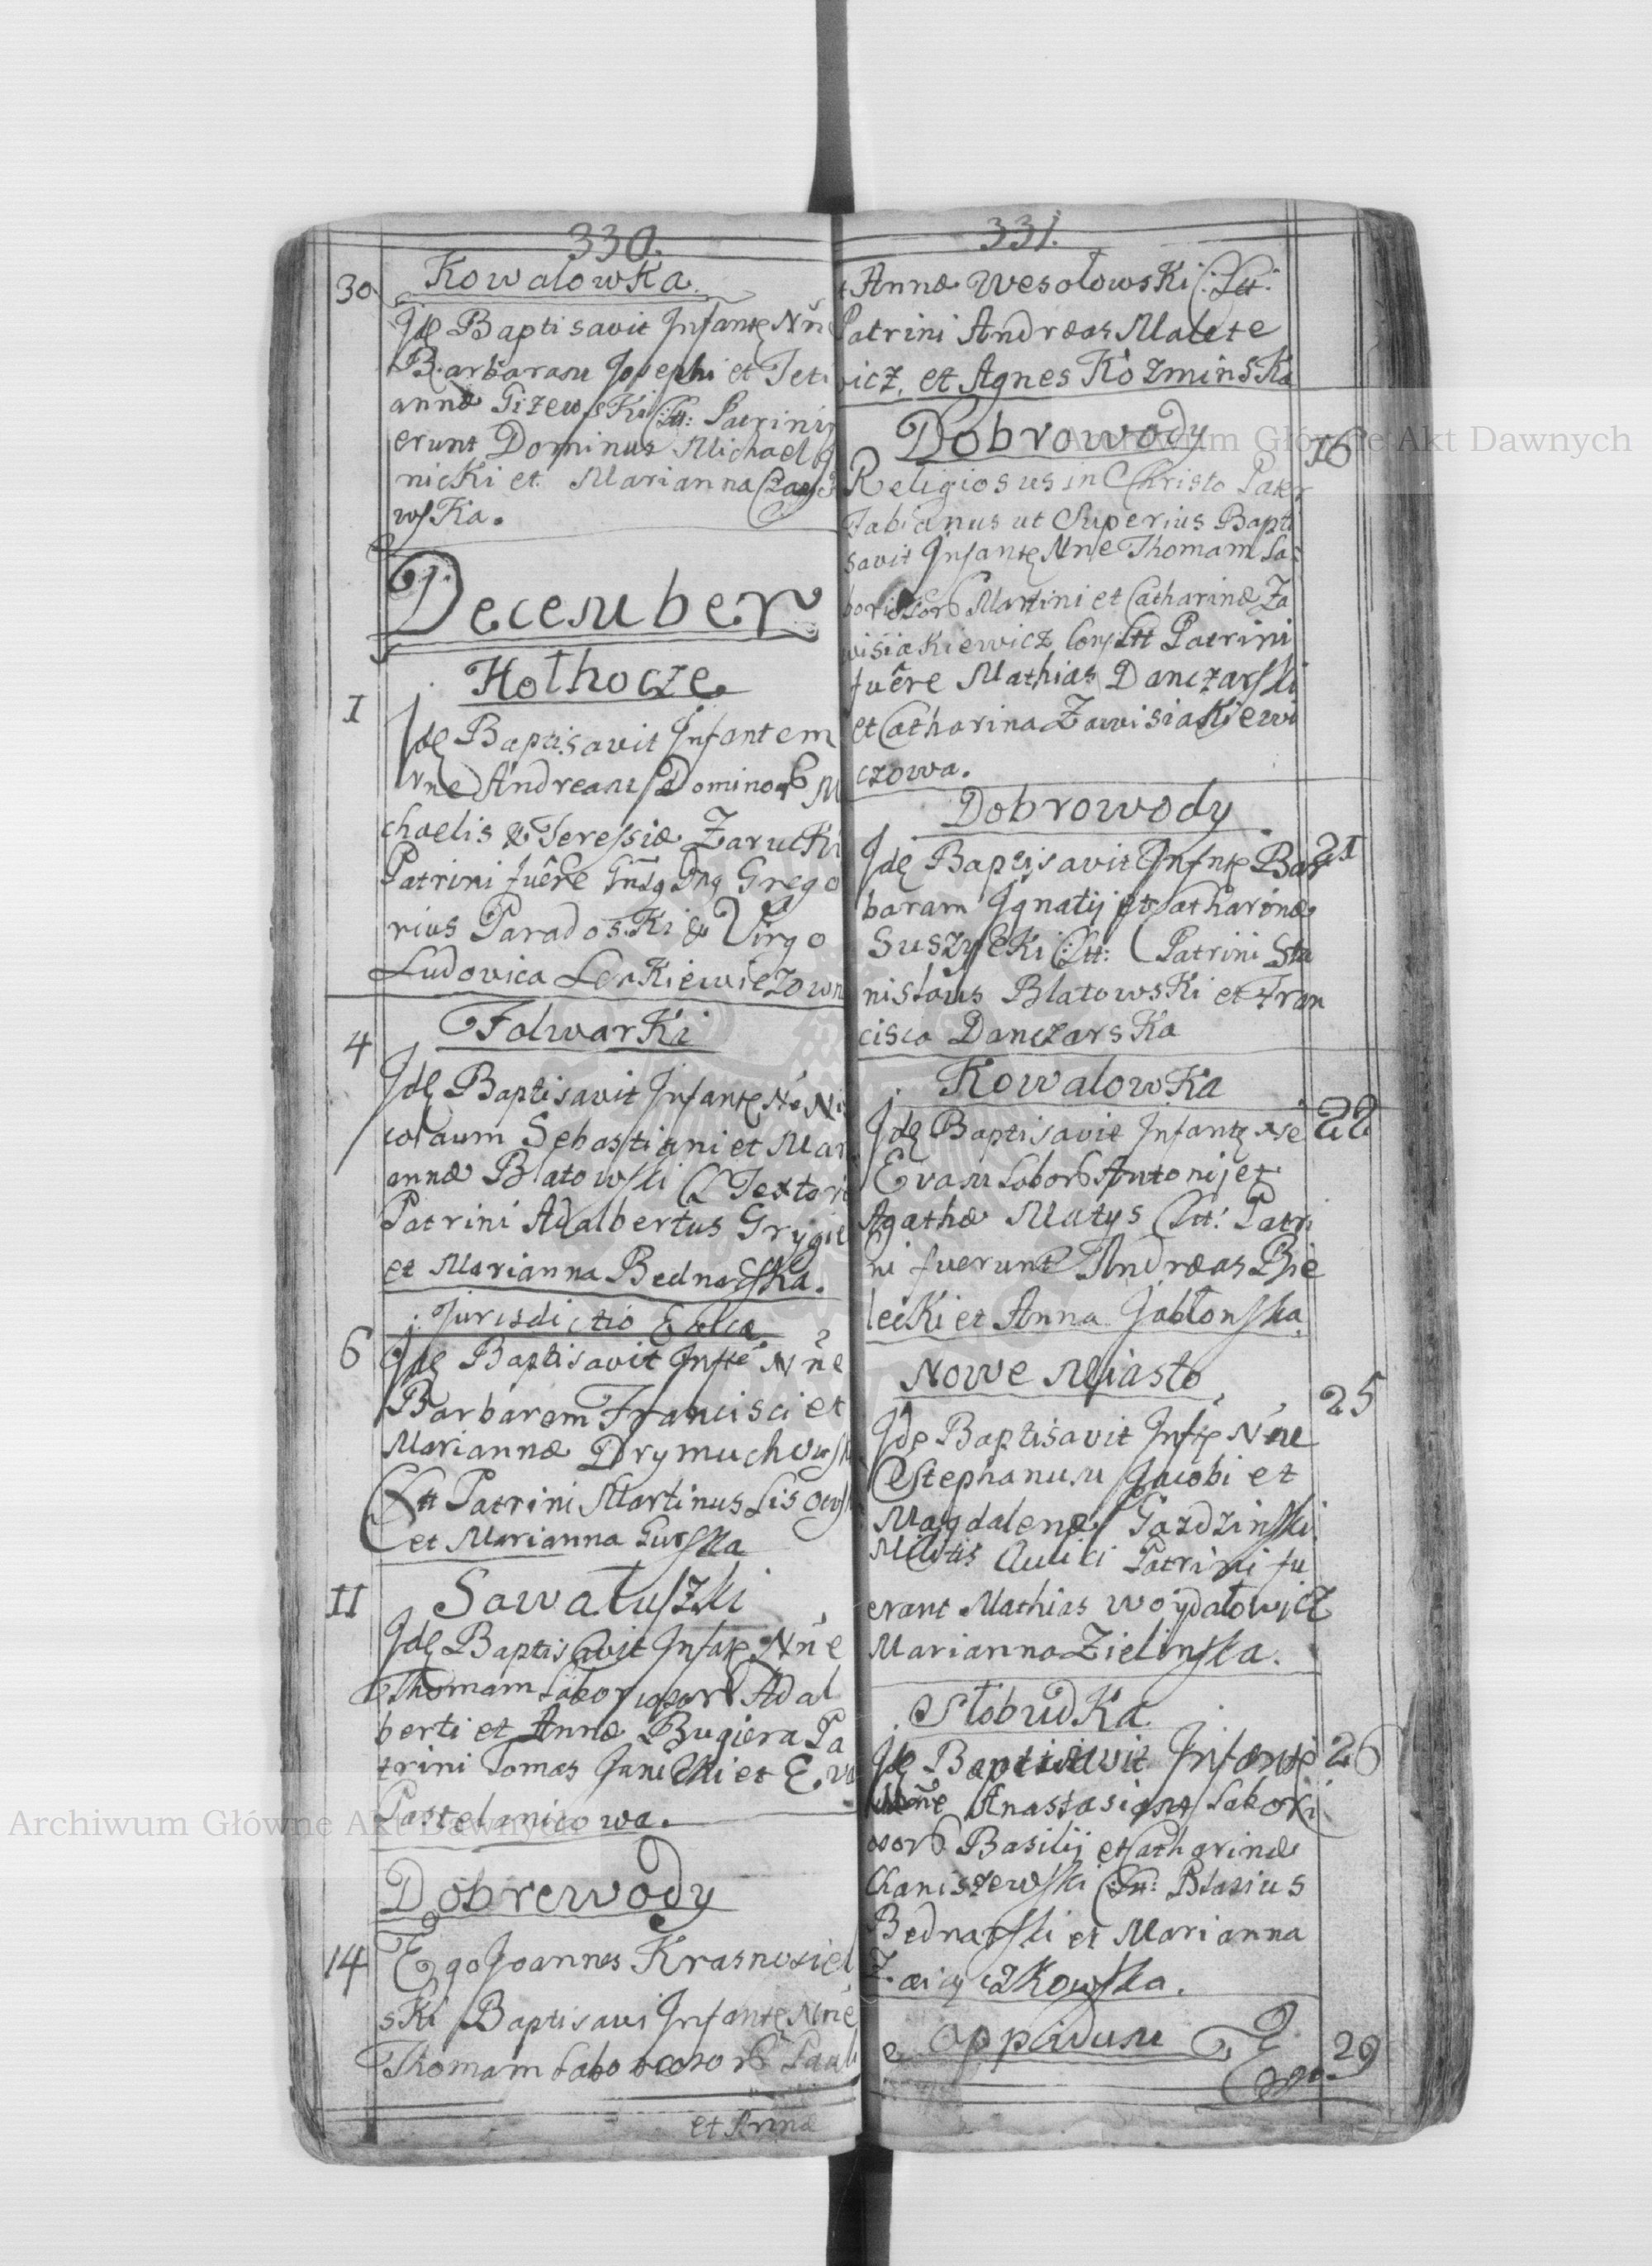 330.
30
Kowalowka.
Jdę Baptisavit Jnfantę Nñe
Barbaram Josephi et Teti
annæ Gizewski C:Ltt: Patrini fu
erunt Dominus Michael
nicki et Marianna
wska.
December
Hołhocze
1
Jdę Baptisavit Jnfantem
Nne Andream Dominor M
chaelis & Teressiæ Zarucki
Patrini fuêre Gnsq Dnq Grego
rius Paradoski & Virgo
Ludovica Lerkiewiczown
Folwarki
4
Jdę Baptisavit Jnfantę Ne Ni
colaum Sebastiani et Mari
annæ Błatowski C L Textori
Patrini Adalbertus Grygie
et Marianna Bednarska.
Jurisdictio Eccl.ca
6
Jdę Baptisavit Jnftê Nñe
Barbaram Francisci et
Mariannæ Drymuchowsk
C Ltt Patrini Martinus Lisows
et Marianna Gurska
Sawałuszki
11
Jdę Baptisavit Jnfatę Nñe
Thomam Laboriosor Adal
berti et Annæ Bugiera Pa
trini Tomas Janicki et Eva
Pastelanicowa.
Dobrewody
14
Ego Joannes Krasnosiel
ski Baptisavi Jnfantę Nne
Thomam Laboriosor Pauli
et Annæ
331.
t Annæ Wesołowski C:Ltt:
Patrini Andreas Malete
wicz, et Agnes Kozminska
Dobrowody
16
Religiosus in Christo Pater
Fabianus ut Superius Bapti
savit Jnfantę Nne Thomam La
boriosor Martini et Catharinæ Za
wisiakiewicz Conj Ltt Patrini
fuêre Mathias Danczarski
et Catharina Zawisiakiewi
czowa.
Dobrowody
21
Jdę Baptisavit Jnfntę Bar
baram Jgnatij et Catharinæ
Suszycki C:Ltt: Patrini Sta
nisłaus Błatowski et Fran
cisca Danczarska
Kowalowka
22
Jdę Baptisavit Jnfantę Ne
Evam Labor Antonij et
Agathæ Matys C Ltt: Patri
ni fuerunt Andreas Bie
lecki et Anna Jabłonska
Nowe Miasto
25
Jdę Baptisavit Jnftę Nne
Stephanum Jacobi et
Magdalenæ Gazdzinski
Militis Aulici Patrini fu
erant Mathias Woydałowicz
Marianna Zielinska.
Słobudka
26
Jdę Baptisavit Jnfantę
Nne Anastasiam Labori
osor Basilij et Catharinæ
Chaniszewski C:Ltt: Blasius
Bednarski et Marianna
Zaiączkowska.
Oppidum
29
Ego.
Archiwum Główne Akt Dawnych
Archiwum Główne Akt Dawnych